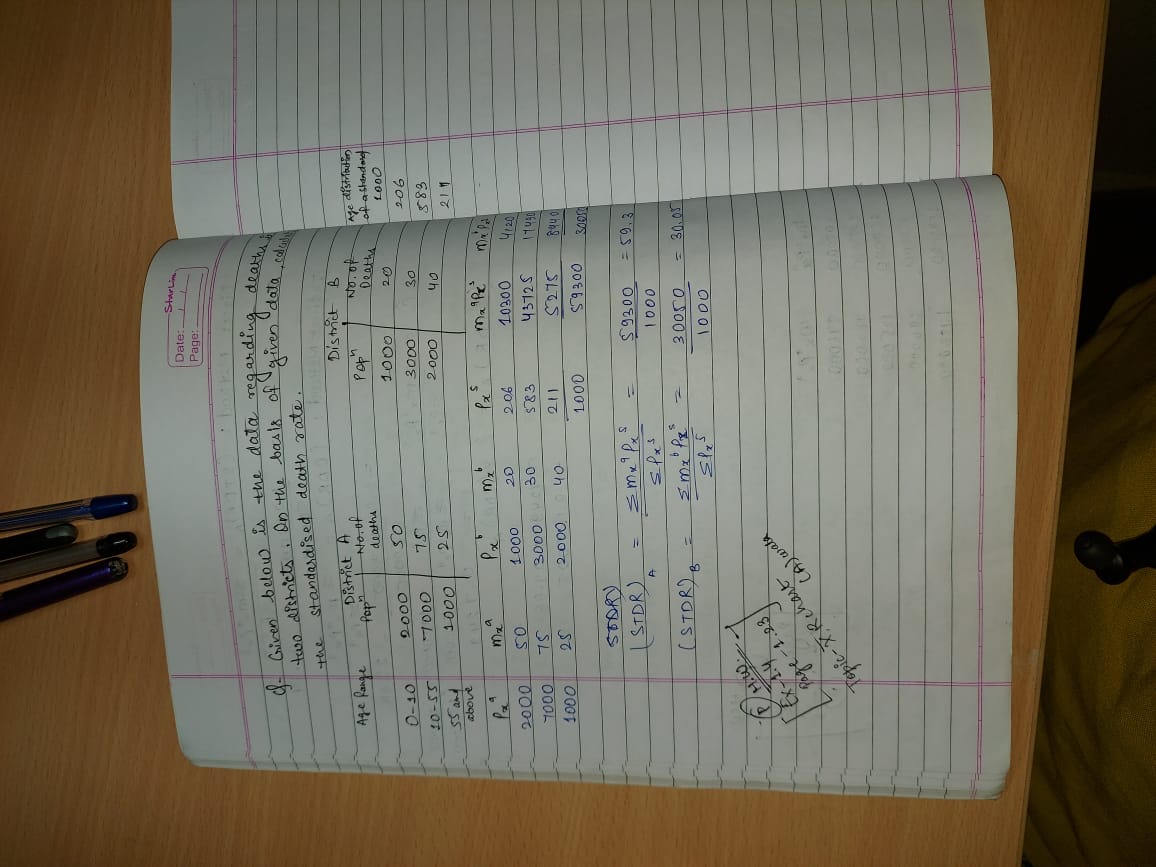 StarLine
Date: / /
Page:
Q- Given below is the data regarding deaths
two districts. On the basis of given data, calcul
the standardised death rate.
Age Range District A District B Age distribution
Popn No. of deaths Popn No. of Deaths of a standard 1000
0-10 2000 50 1000 20 206
10-55 7000 75 3000 30 583
55 and above 1000 25 2000 40 211
Pxa mxa Pxb mxb Pxs mxaPxs mxbPxs
2000 50 1000 20 206 10300 4120
7000 75 3000 30 583 43725 17490
1000 25 2000 40 211 5275 8440
1000 59300 30050
STDR)
(STDR)A = Σmxa Pxs / ΣPxs = 59300 / 1000 = 59.3
(STDR)B = Σmxb Pxs / ΣPxs = 30050 / 1000 = 30.05
(P) H.W.
Ex-1.4
Page-1.23
Topic-